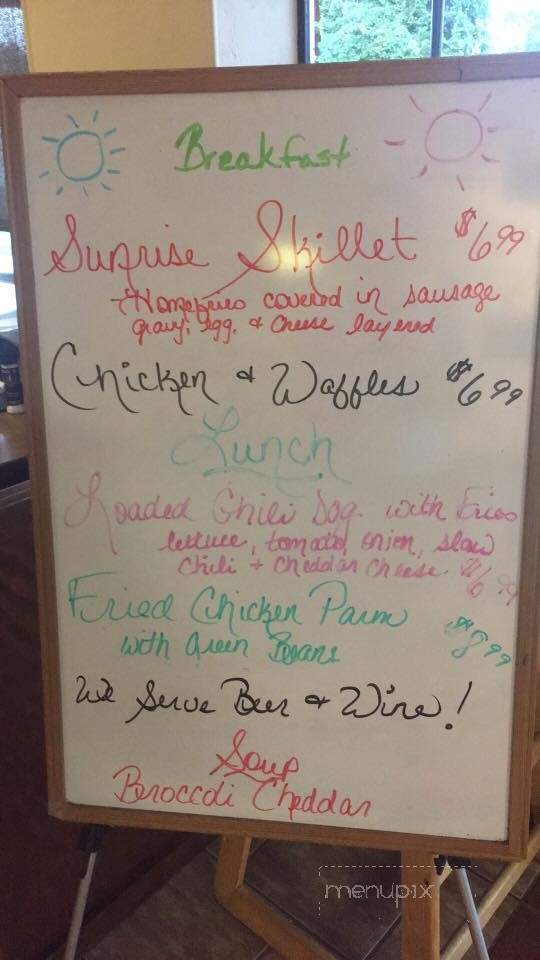 Breakfast
Sunrise Skillet $6.99
Homefries covered in sausage
gravy, egg, & cheese layered
Chicken & Waffles $6.99
Lunch
Loaded Chili Dog with Fries
lettuce, tomato, onion, slaw
chili + cheddar cheese $6.99
Fried Chicken Parm $8.99
with Green Beans
We Serve Beer & Wine!
Soup
Broccoli Cheddar
menupix